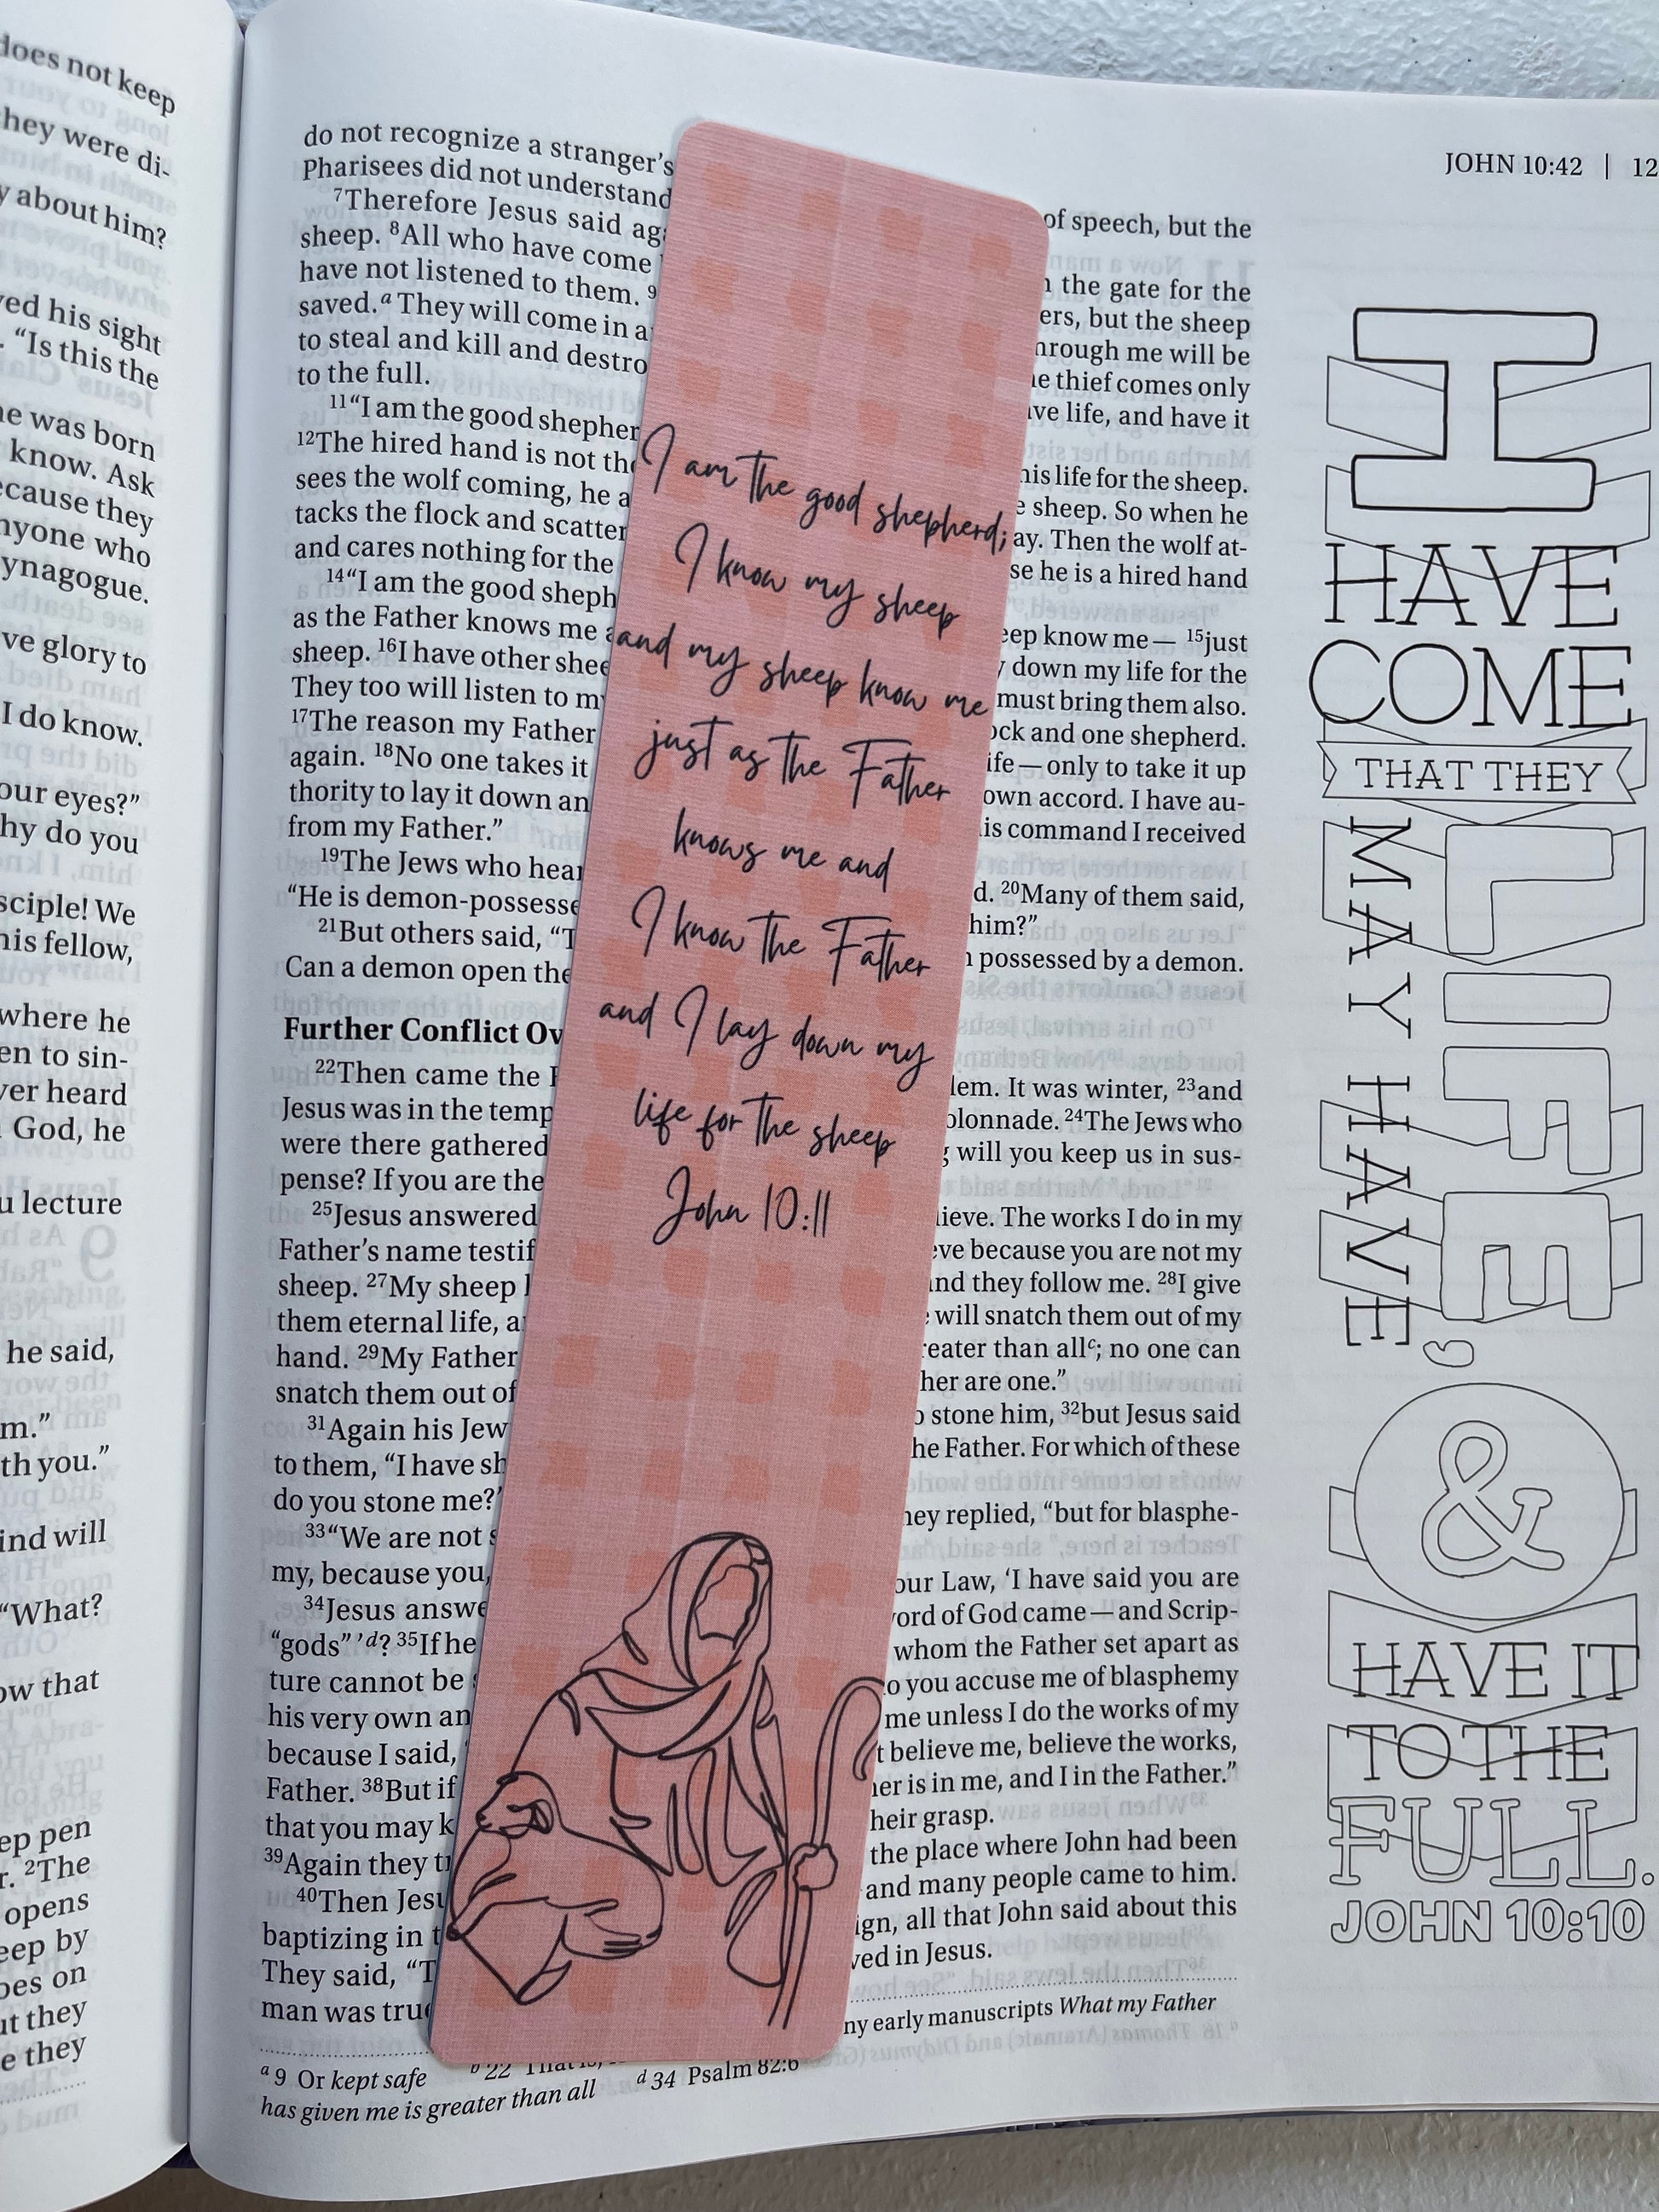 does not keep
they were di-
y about him?
ved his sight
. “Is this the
he was born
know. Ask
ecause they
nyone who
ynagogue.
ve glory to
I do know.
our eyes?”
hy do you
sciple! We
his fellow,
where he
en to sin-
ver heard
God, he
u lecture
he said,
m.”
th you.”
ind will
“What?
ow that
ep pen
r. 2The
opens
eep by
oes on
ut they
e they
JOHN 10:42 | 12
do not recognize a stranger’s
Pharisees did not understand of speech, but the
7Therefore Jesus said aga n the gate for the
sheep. 8All who have come ers, but the sheep
have not listened to them. 9 hrough me will be
saved.a They will come in a he thief comes only
to steal and kill and destro ave life, and have it
to the full.
11“I am the good shepher his life for the sheep.
12The hired hand is not the e sheep. So when he
sees the wolf coming, he a ay. Then the wolf at-
tacks the flock and scatter se he is a hired hand
and cares nothing for the
14“I am the good sheph eep know me — 15just
as the Father knows me a y down my life for the
sheep. 16I have other shee must bring them also.
They too will listen to my ock and one shepherd.
17The reason my Father ife — only to take it up
again. 18No one takes it own accord. I have au-
thority to lay it down an is command I received
from my Father.”
19The Jews who hear d. 20Many of them said,
“He is demon-possesse him?”
21But others said, “T possessed by a demon.
Can a demon open the
Further Conflict Ov
22Then came the F lem. It was winter, 23and
Jesus was in the temp olonnade. 24The Jews who
were there gathered g will you keep us in sus-
pense? If you are the
25Jesus answered lieve. The works I do in my
Father’s name testif eve because you are not my
sheep. 27My sheep l and they follow me. 28I give
them eternal life, a will snatch them out of my
hand. 29My Father reater than allc; no one can
snatch them out of her are one.”
31Again his Jew o stone him, 32but Jesus said
to them, “I have sh he Father. For which of these
do you stone me?’
33“We are not s hey replied, “but for blasphe-
my, because you,
34Jesus answe our Law, ‘I have said you are
“gods” ’d? 35If he ord of God came — and Scrip-
ture cannot be whom the Father set apart as
his very own an o you accuse me of blasphemy
because I said, me unless I do the works of my
Father. 38But if t believe me, believe the works,
that you may k her is in me, and I in the Father.”
39Again they tr heir grasp.
40Then Jesu the place where John had been
baptizing in t and many people came to him.
They said, “T ign, all that John said about this
man was true ved in Jesus.
a 9 Or kept safe b 22 That is, d 34 Psalm 82:6 ny early manuscripts What my Father
has given me is greater than all
I am the good shepherd;
I know my sheep
and my sheep know me
just as the Father
knows me and
I know the Father
and I lay down my
life for the sheep
John 10:11
I
HAVE
COME
THAT THEY
MAY HAVE
LIFE,
&
HAVE IT
TO THE
FULL.
JOHN 10:10